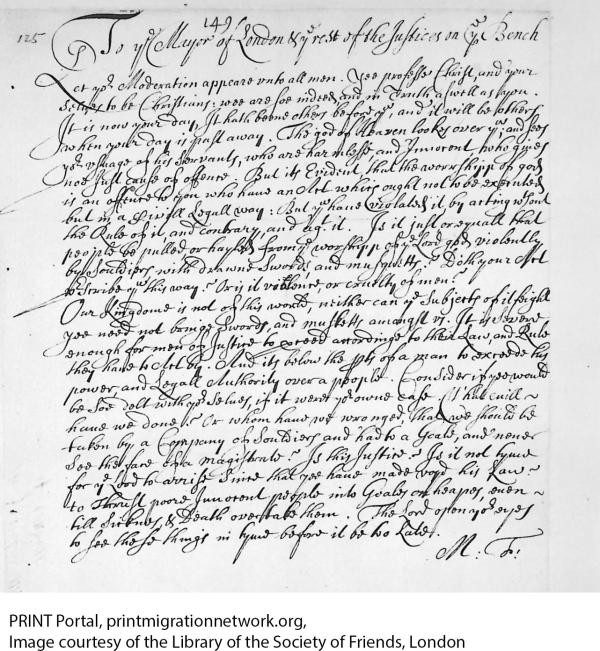 125
149
To ye Mayor of London & ye rest of the Justices on ye Bench
Let yor Moderation appeare unto all men. Yee professe Christ, and your
selves to be Christians: wee are soe indeed, and in Truth as well as you.
It is now your day, It hath beene others before yu, and it will be others
when your day is past away. The god of Heaven lookes over yu; and sees
yor usuage of his Servants, who are harmlesse, and Innocent who gives
noe Just cause of offence. But its Evident that the worshipp of god
is an offence to you who have an Act which ought not to be executed
but in a Civill Legall way: But yu have violated it by acting wthout
the Rule of it, and contrary, and agt. it. Is it just or equall that
people be pulled or hayled from ye worshipp of ye Lord god violently
by Souldiers with drawne Swords and musquetts? Doth your Act
p'scribe yu this way? Or is it violence, or cruelty of men?
Our Kingdome is not of this world, neither can ye Subjects of it fight
yee need not bringe Swords, and musketts amongst us. It is severe
enough for men of Justice to proceed accordinge to their Law, and Rule
they have to Act by. And its below the pt of a man to exceede his
power and Legall Authority over a people. Consider if yee would
be soe delt with yor selves, if it were yor owne case. What evill
have we done? Or whom have we wronged, that we should be
taken by a Company of Souldiers and had to a Goale, and never
see the face of a magistrate? Is this Justice? Is it not tyme
for ye Lord to arrise since that yee have made voyd his Law?
to Thrust poore Innocent people into Goales on heapes, even
till sicknes, & Death overtake them. The Lord open yor eyes
to see these things in tyme before it be too Late.
M: F:
PRINT Portal, printmigrationnetwork.org,
Image courtesy of the Library of the Society of Friends, London